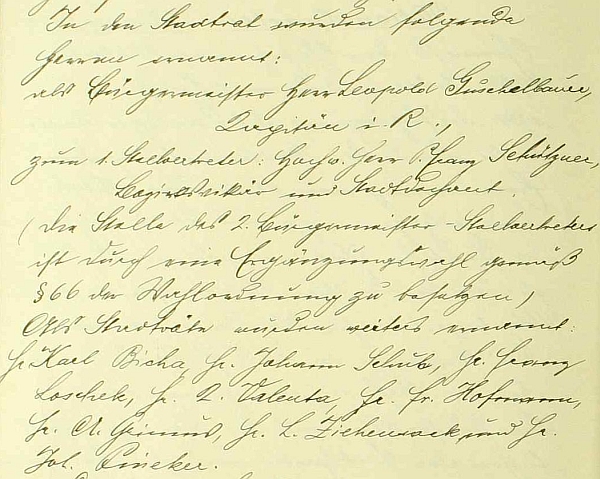 In den Stadtrat wurden folgende
Herren ernannt:
als Bürgermeister Herr Leopold Guschelbauer,
Kapitän i. R.,
zum 1. Stellvertreter: Hochw. Herr P. Franz Schützner,
und Stadtdechant.
(Die Stelle des 2. Bürgermeister-Stellvertreters
ist durch eine Ergänzungswahl gemäß
§ 66 der Wahlordnung zu besetzen)
Als Stadträte wurden weiters ernannt:
Hr. Karl Bicha, Hr. Johann Schub, Hr. Franz
Loschek, Hr. L. Valenta, Hr. Fr. Hofmann,
Hr. A. Grimus, Hr. L. Ziehensack, und Hr.
Joh. Pineker.